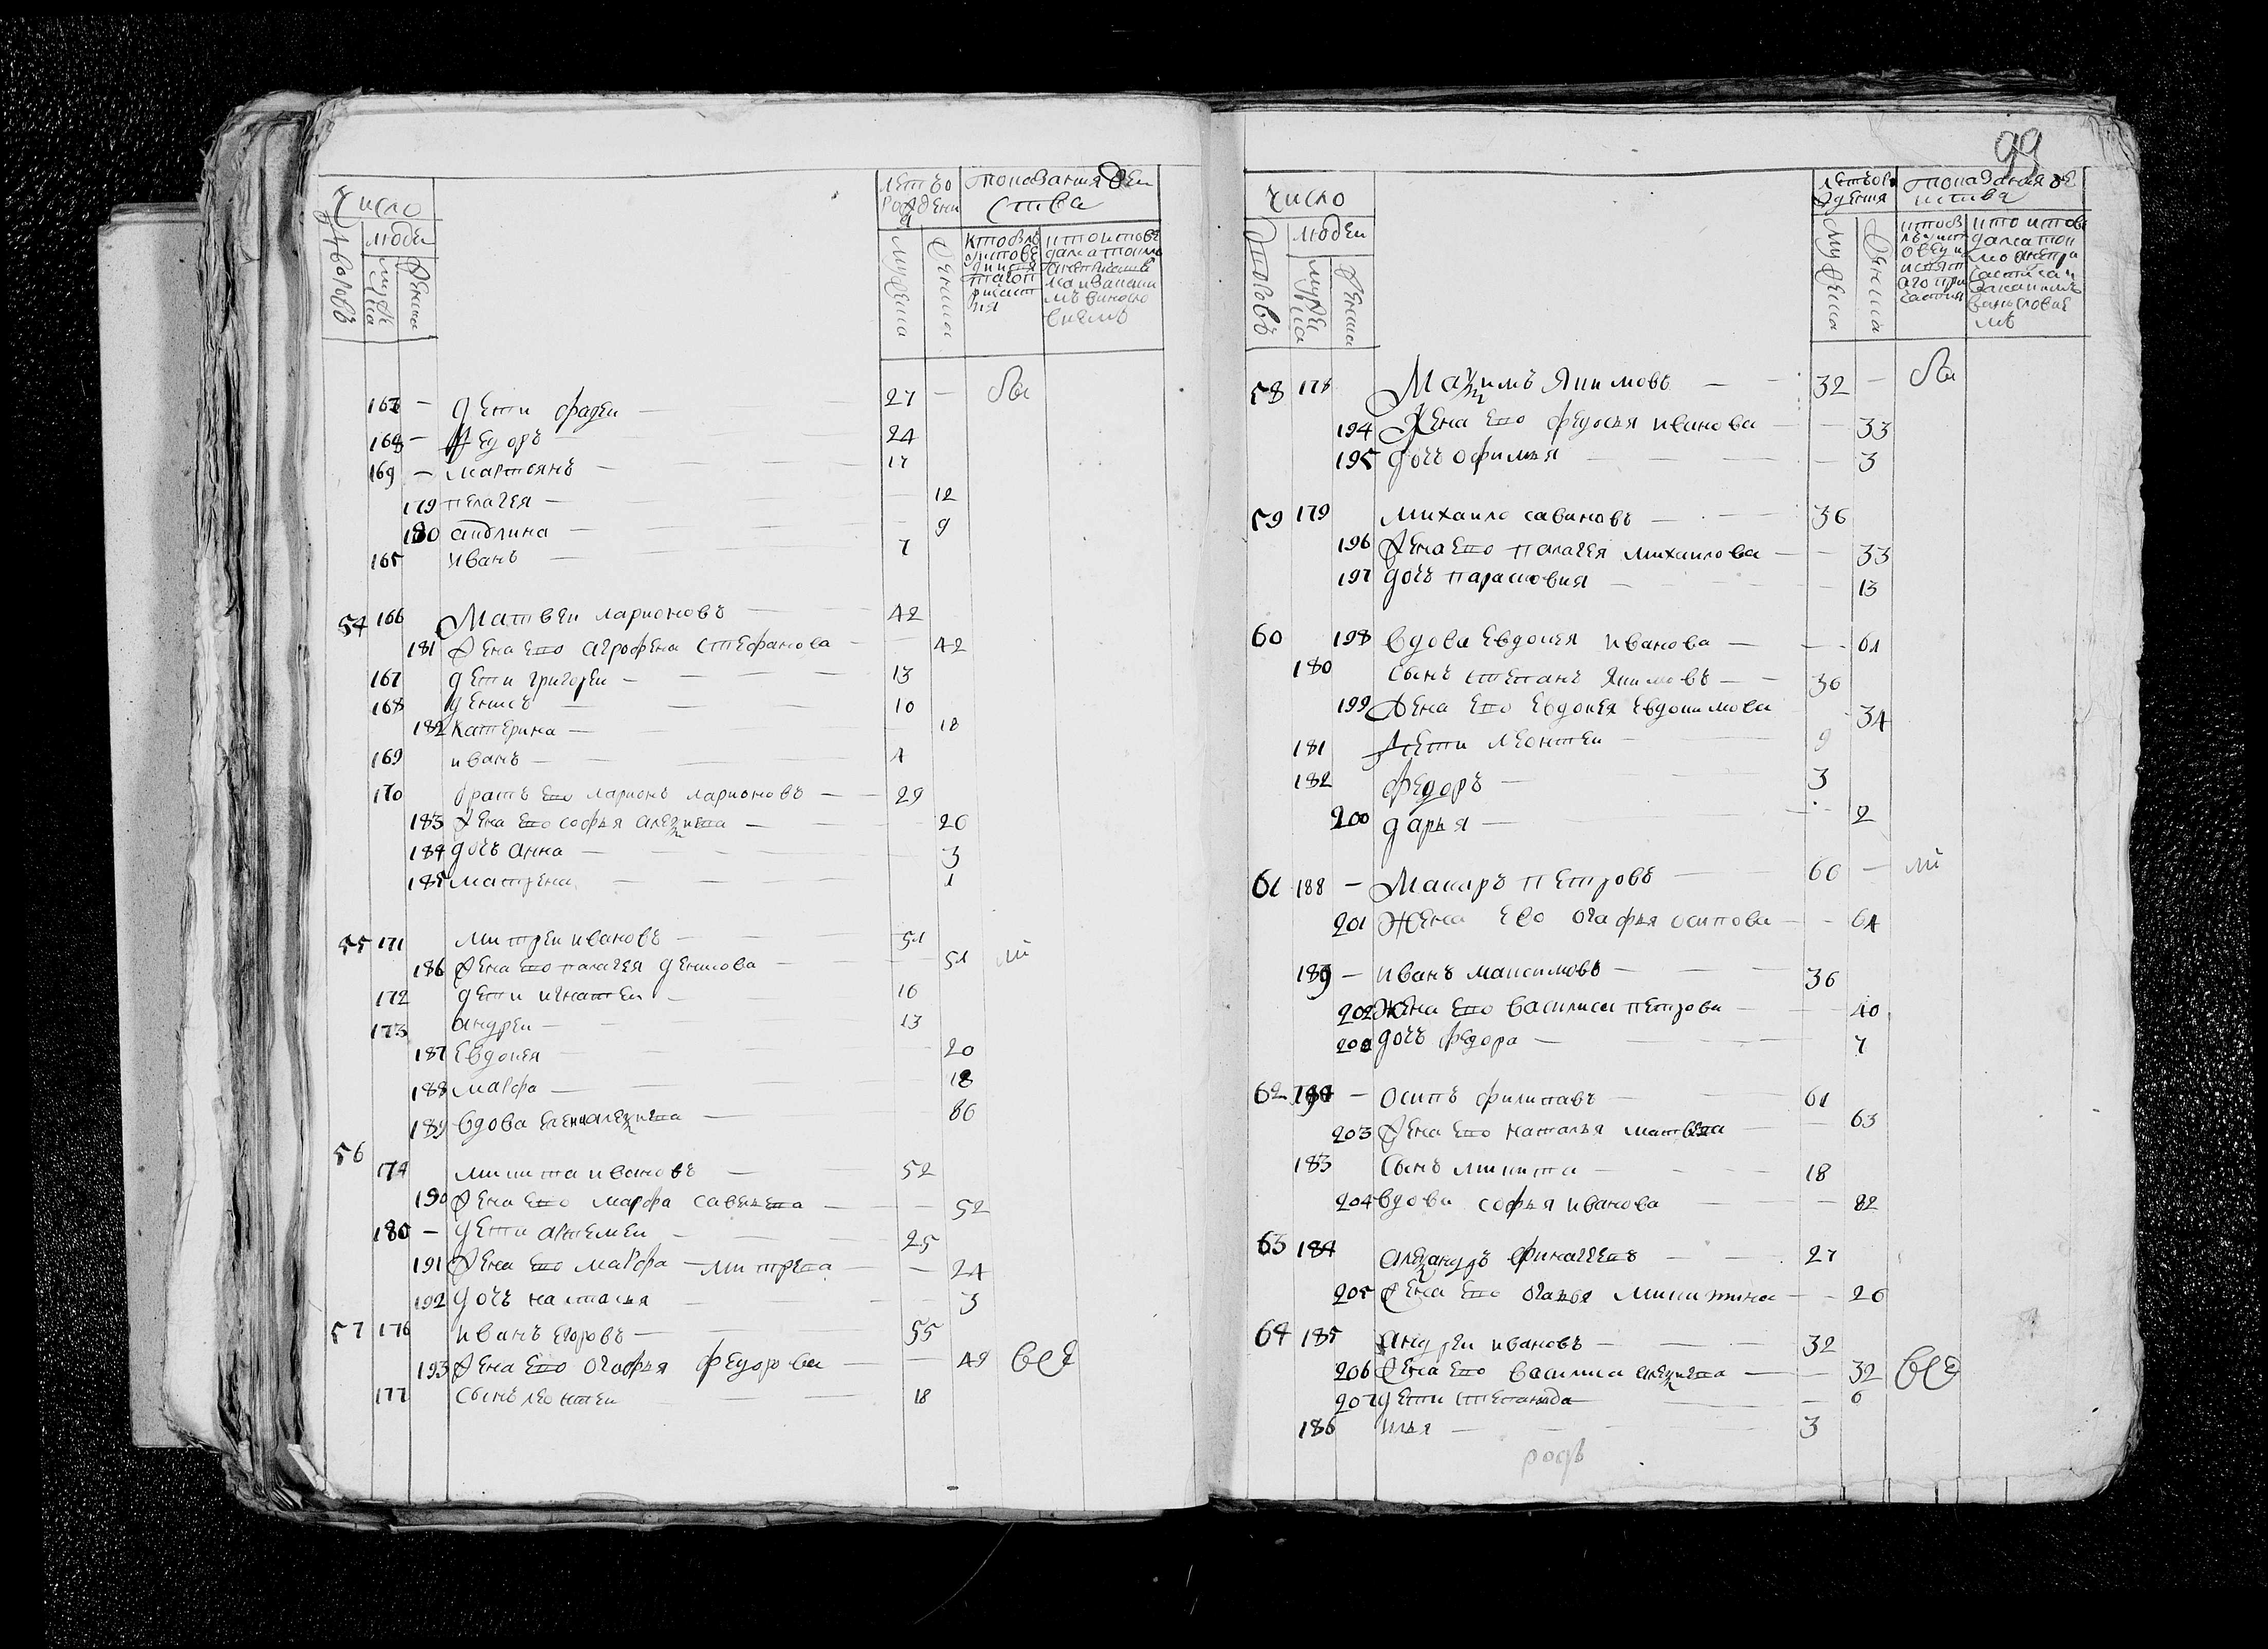 число
дворовъ
людеи
мужеска
женска
летъ во рождени
мужеска
женска
показания деи
ства
167 — дети фадеи — 27 — бы
168 — федоръ — 24
169 — мартоянъ — 17
179 пелагея — 12
180 акулина — 9
165 иванъ — 7
54 166 Матвеи ларионовъ — 42
181 жена ево агрофена стефанова — 42
167 дети григореи — 13
168 денисъ — 10
182 катерина — 18
169 иванъ — 4
170 братъ ево ларионъ ларионовъ — 29
183 жена ево софья алексиева — 26
184 дочь анна — 3
185 матрена — 1
55 171 митреи ивановъ — 51
186 жена ево палагея денисова — 51 ли
172 дети игнатеи — 16
173 андреи — 13
187 евдокея — 20
188 марфа — 18
189 вдова елена алексиева — 86
56
174 микита ивановъ — 52
190 жена ево марфа савельева — 52
180 — дети артемеи — 25
191 жена ево марфа митрева — 24
192 дочь наталья — 3
57 176 иванъ егоровъ — 55
193 жена ево огафья федорова — 49 все
177 сынъ леонтеи — 18
99
число
дворовъ
людеи
мужеска
женска
летъ во рождения
мужеска
женска
показания де
иства
58 178 Максимъ Якимовъ — 32 — бы
194 Жена ево федосья иванова — 33
195 дочь офимья — 3
59 179 михаило савиновъ — 36
196 жена ево палагея михаилова — 33
197 дочь парасковия — 13
60 198 вдова евдокея иванова — 61
180 сынъ степанъ якимовъ — 36
199 жена ево евдокея евдокимова 34
181 дети леонтеи — 9
182 федоръ — 3
200 дарья — 2
61 188 — Макаръ петровъ — 60 — ли
201 жена ево огафья осипова — 64
189 — иванъ максимовъ — 36
202 жена ево василиса петрова — 40
202 дочь федора — 7
62 190 — осипъ филипавъ — 61
203 жена ево наталья матвева — 63
183 сынъ микита — 18
204 вдова софья иванова — 82
63 184 александръ финагеевъ — 27
205 жена ево огафья микитина — 26
64 185 андреи ивановъ — 32
206 жена ево василиса алексиева — 32 все
207 дети степанида — 6
186 илья — 3
родъ